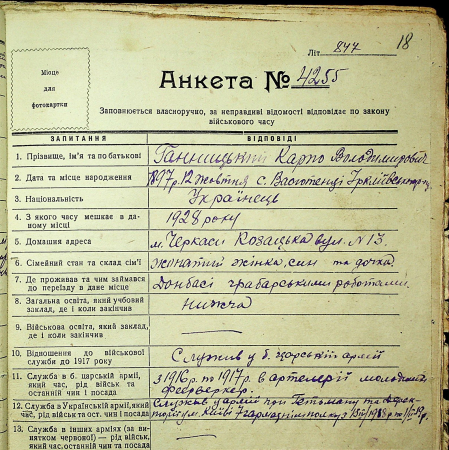 Літ 844 18
Місце
для
фотокартки
Анкета № 4255
Заповнюється власноручно, за неправдиві відомості відповідає по закону
військового часу
ЗАПИТАННЯ ВІДПОВІДІ
1. Прізвище, ім'я та по батькові Карпо Володимирович
2. Дата та місце народження 1897 р. 12 жовтня с.
3. Національність Українець
4. З якого часу мешкає в да-
ному місці 1928 року
5. Домашня адреса м. Черкаси Козацька вул. N 13.
6. Сімейний стан та склад сім'ї жонатий жінка, син та дочка
7. Де проживав та чим займався
до переїзду в дане місце Донбасі грабарськими роботами.
8. Загальна освіта, який учбовий
заклад, де і коли закінчив нижча
9. Військова освіта, який заклад,
де і коли закінчив —
10. Відношення до військової
служби до 1917 року Служив у б. царській армії
11. Служба в б. царській армії,
який час, рід військ та
останній чин і посада з 1916 р. по 1917 р. в артелерії молодший
феєрверкер.
12. Служба в Українській армії, який
час, рід військ та ост. чин і посада Служив у армії при Гетьману та
у м. Київі
13. Служба в інших арміях (за ви-
нятком червоної) — рід військ,
який час, останній чин та посада —